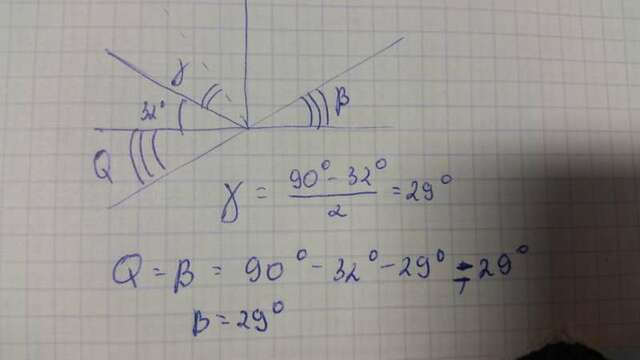 γ
32°
β
Q
γ = (90° - 32°)/2 = 29°
Q = β = 90° - 32° - 29° = 29°
β = 29°